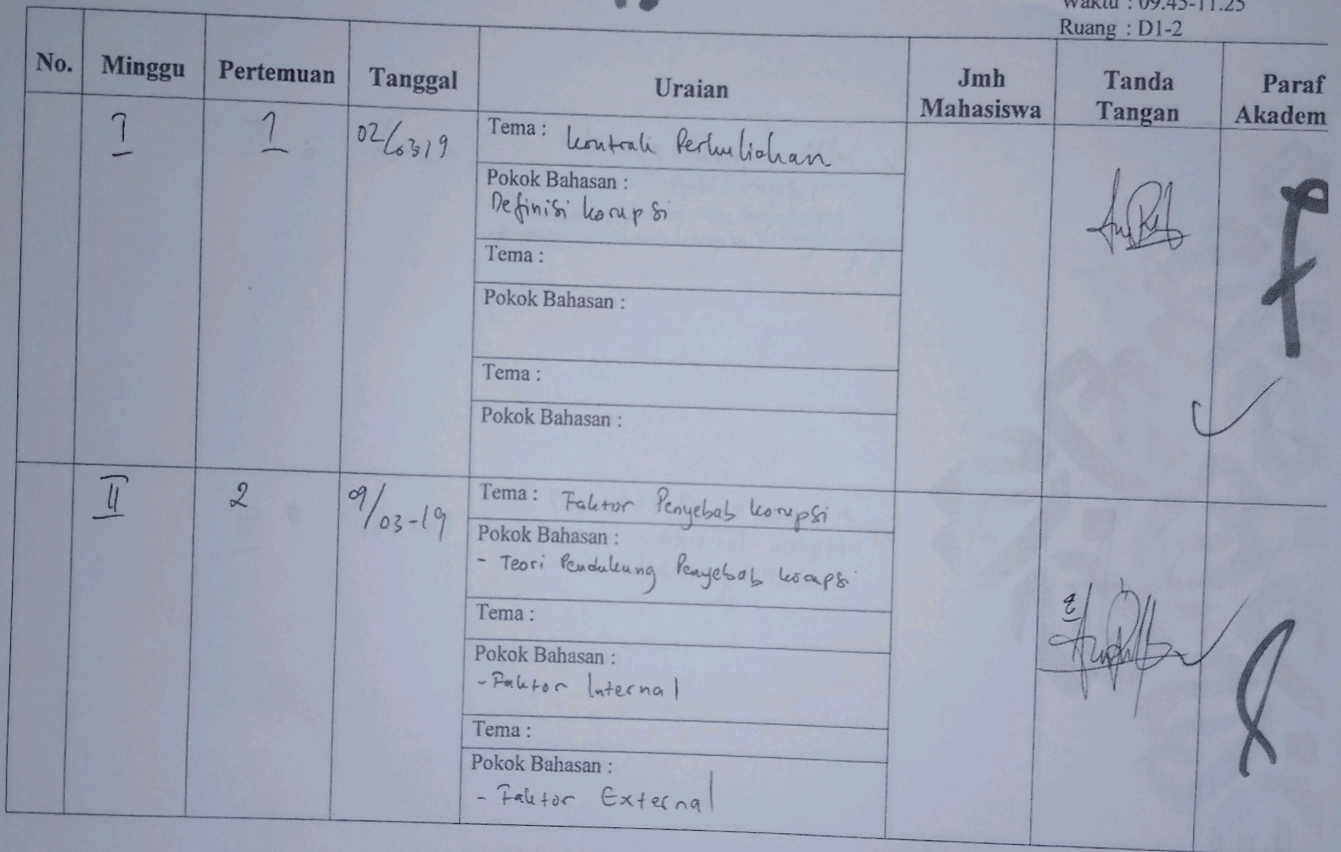 Waktu : 09.45-11.25
Ruang : D1-2
No. Minggu Pertemuan Tanggal Uraian Jmh Mahasiswa Tanda Tangan Paraf Akadem
I 1 02/03 19 Tema : Kontrak Perkuliahan
Pokok Bahasan :
Definisi korupsi
Tema :
Pokok Bahasan :
Tema :
Pokok Bahasan :
II 2 09/03-19 Tema : Faktor Penyebab korupsi
Pokok Bahasan :
- Teori Pendukung Penyebab korupsi
Tema :
Pokok Bahasan :
- Faktor Internal
Tema :
Pokok Bahasan :
- Faktor External